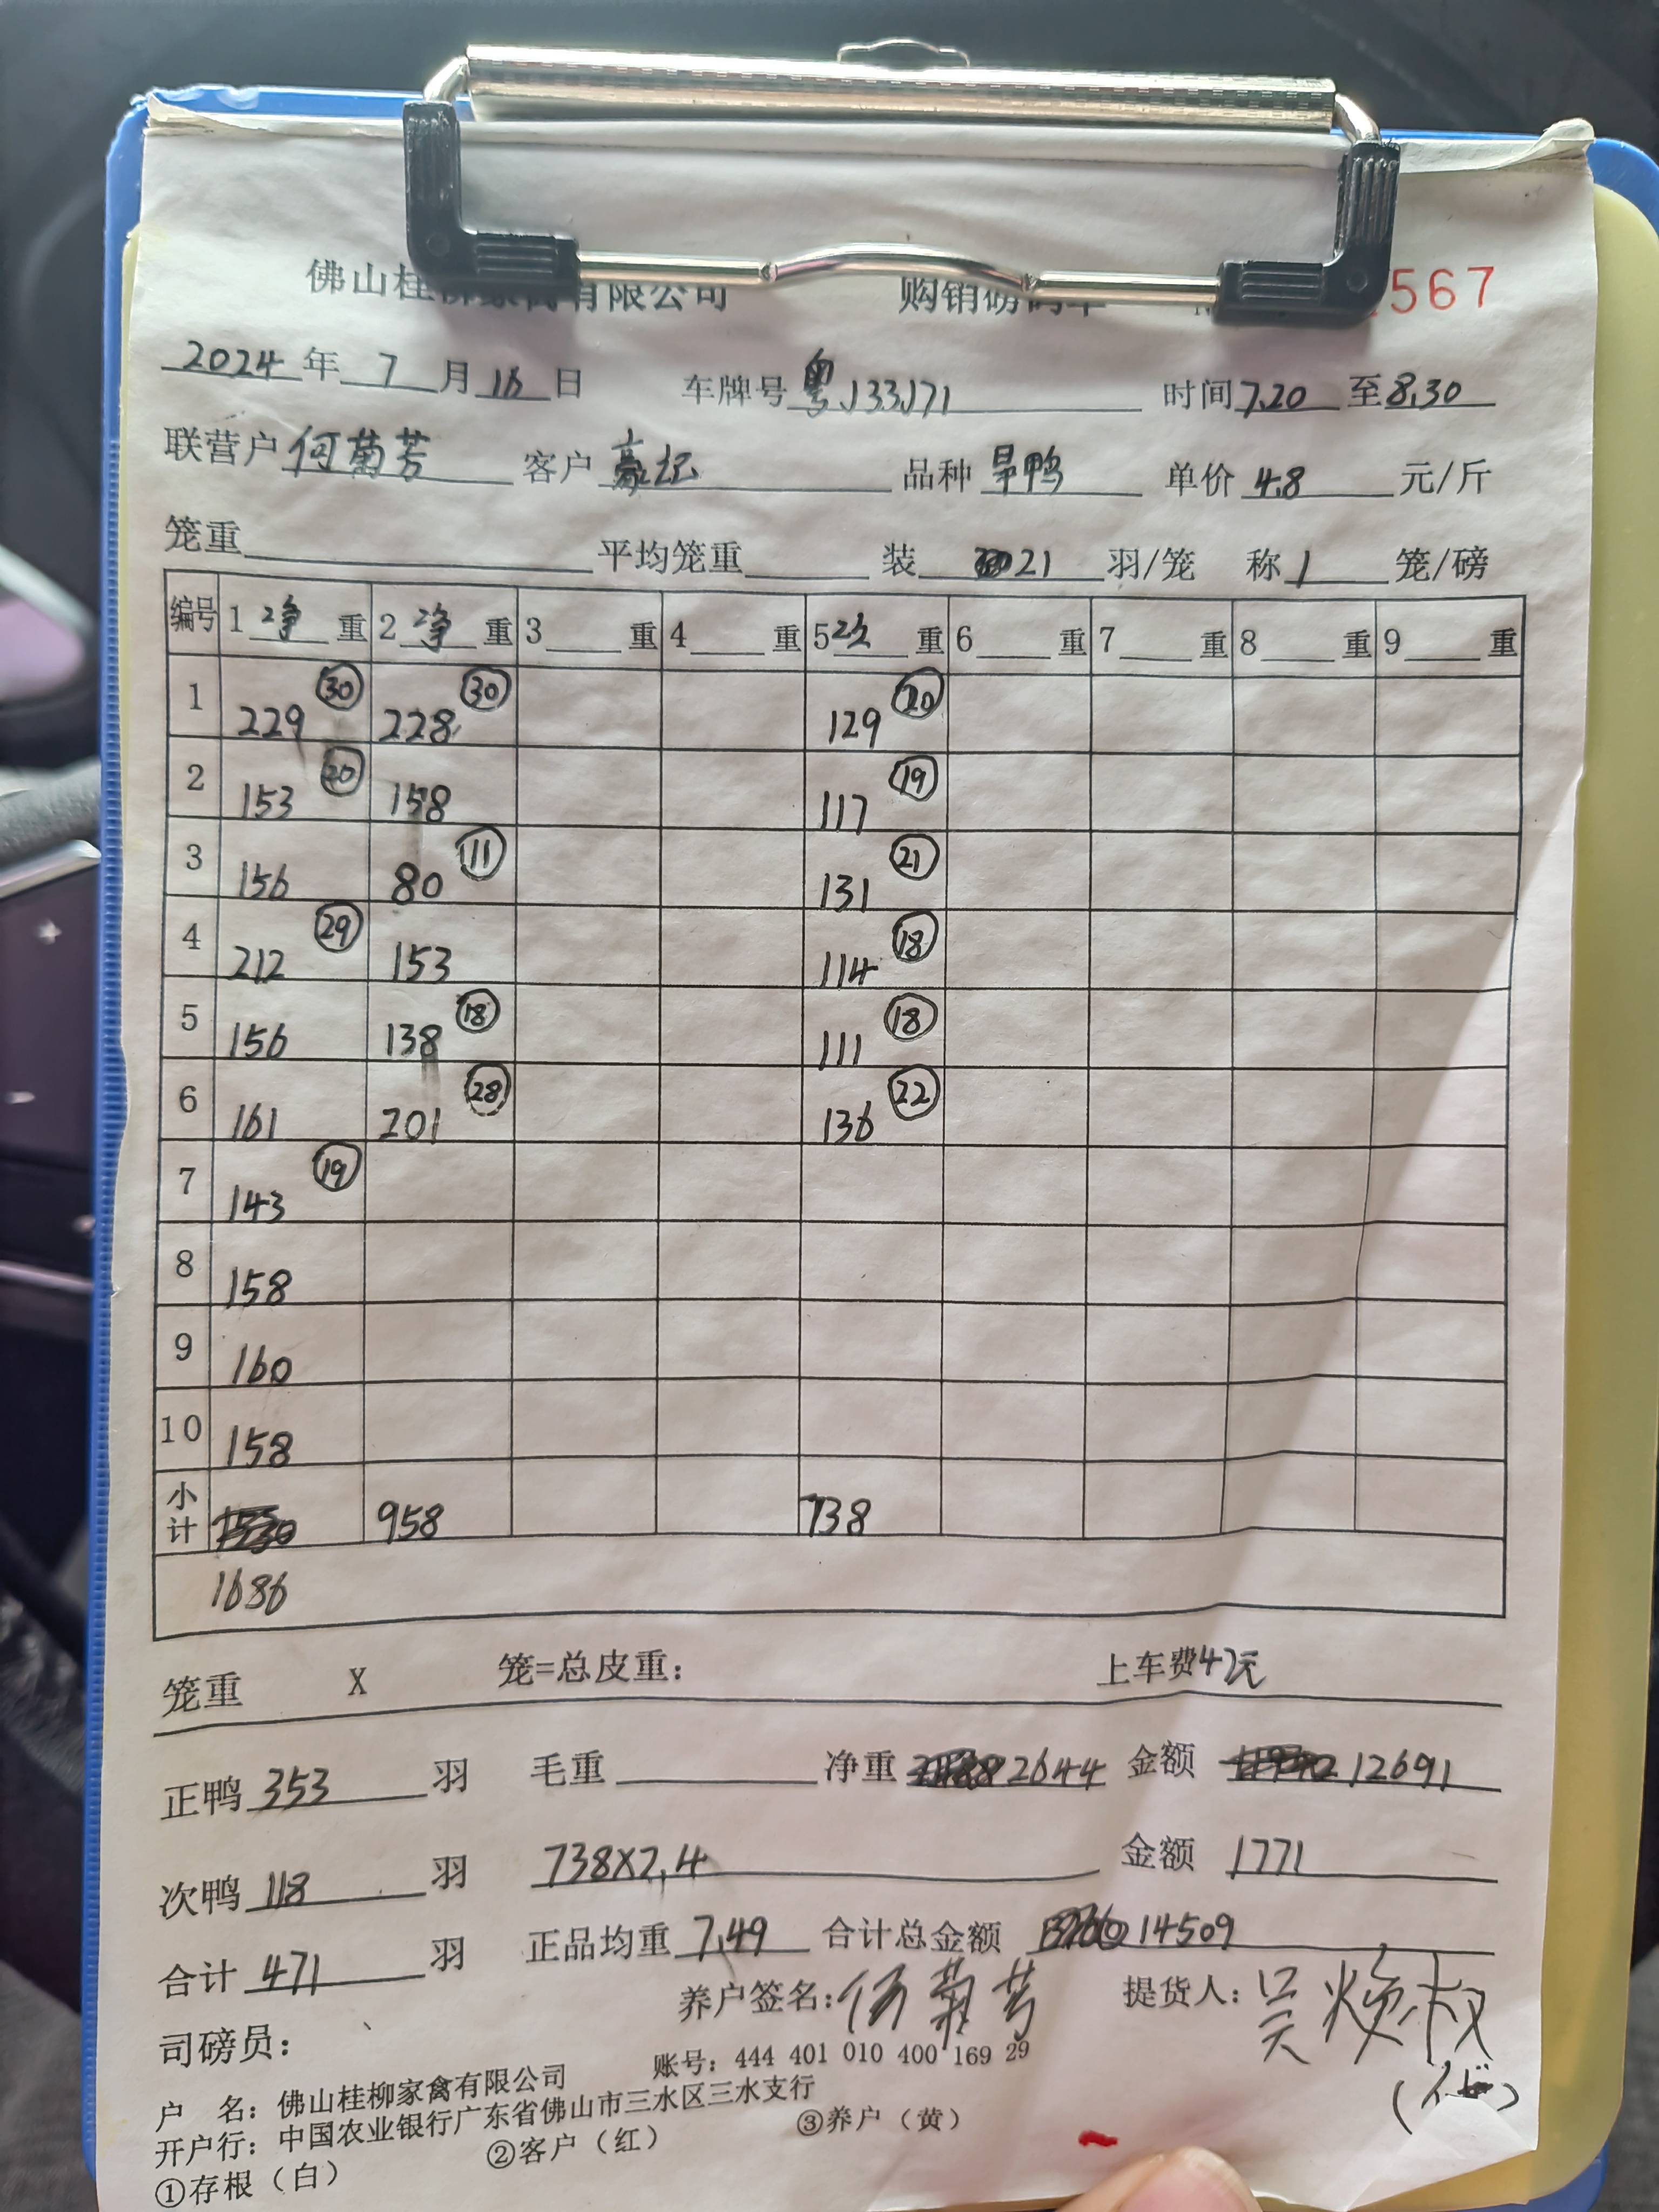 佛山桂柳家禽有限公司 购销磅码单 567
2024年7月16日 车牌号粤J33J71 时间7.20至8.30
联营户何菊芳 客户豪记 品种旱鸭 单价4.8元/斤
笼重 平均笼重 装21羽/笼 称1笼/磅
编号 1净重 2净重 3重 4重 5次重 6重 7重 8重 9重
1 229 ㉚ 228 ㉚ 129 ⑳
2 153 ⑳ 158 117 ⑲
3 156 80 ⑪ 131 ㉑
4 212 ㉙ 153 114 ⑱
5 156 138 ⑱ 111 ⑱
6 161 201 ㉘ 136 ㉒
7 143 ⑲
8 158
9 160
10 158
小计 958 738
1686
笼重 X 笼=总皮重: 上车费47元
正鸭353羽 毛重 净重2644 金额12691
次鸭118羽 738X2.4 金额1771
合计471羽 正品均重7.49 合计总金额14509
司磅员: 养户签名:何菊芳 提货人:吴焕叔
户 名:佛山桂柳家禽有限公司 账号:444 401 010 400 169 29
开户行:中国农业银行广东省佛山市三水区三水支行
①存根(白) ②客户(红) ③养户(黄)